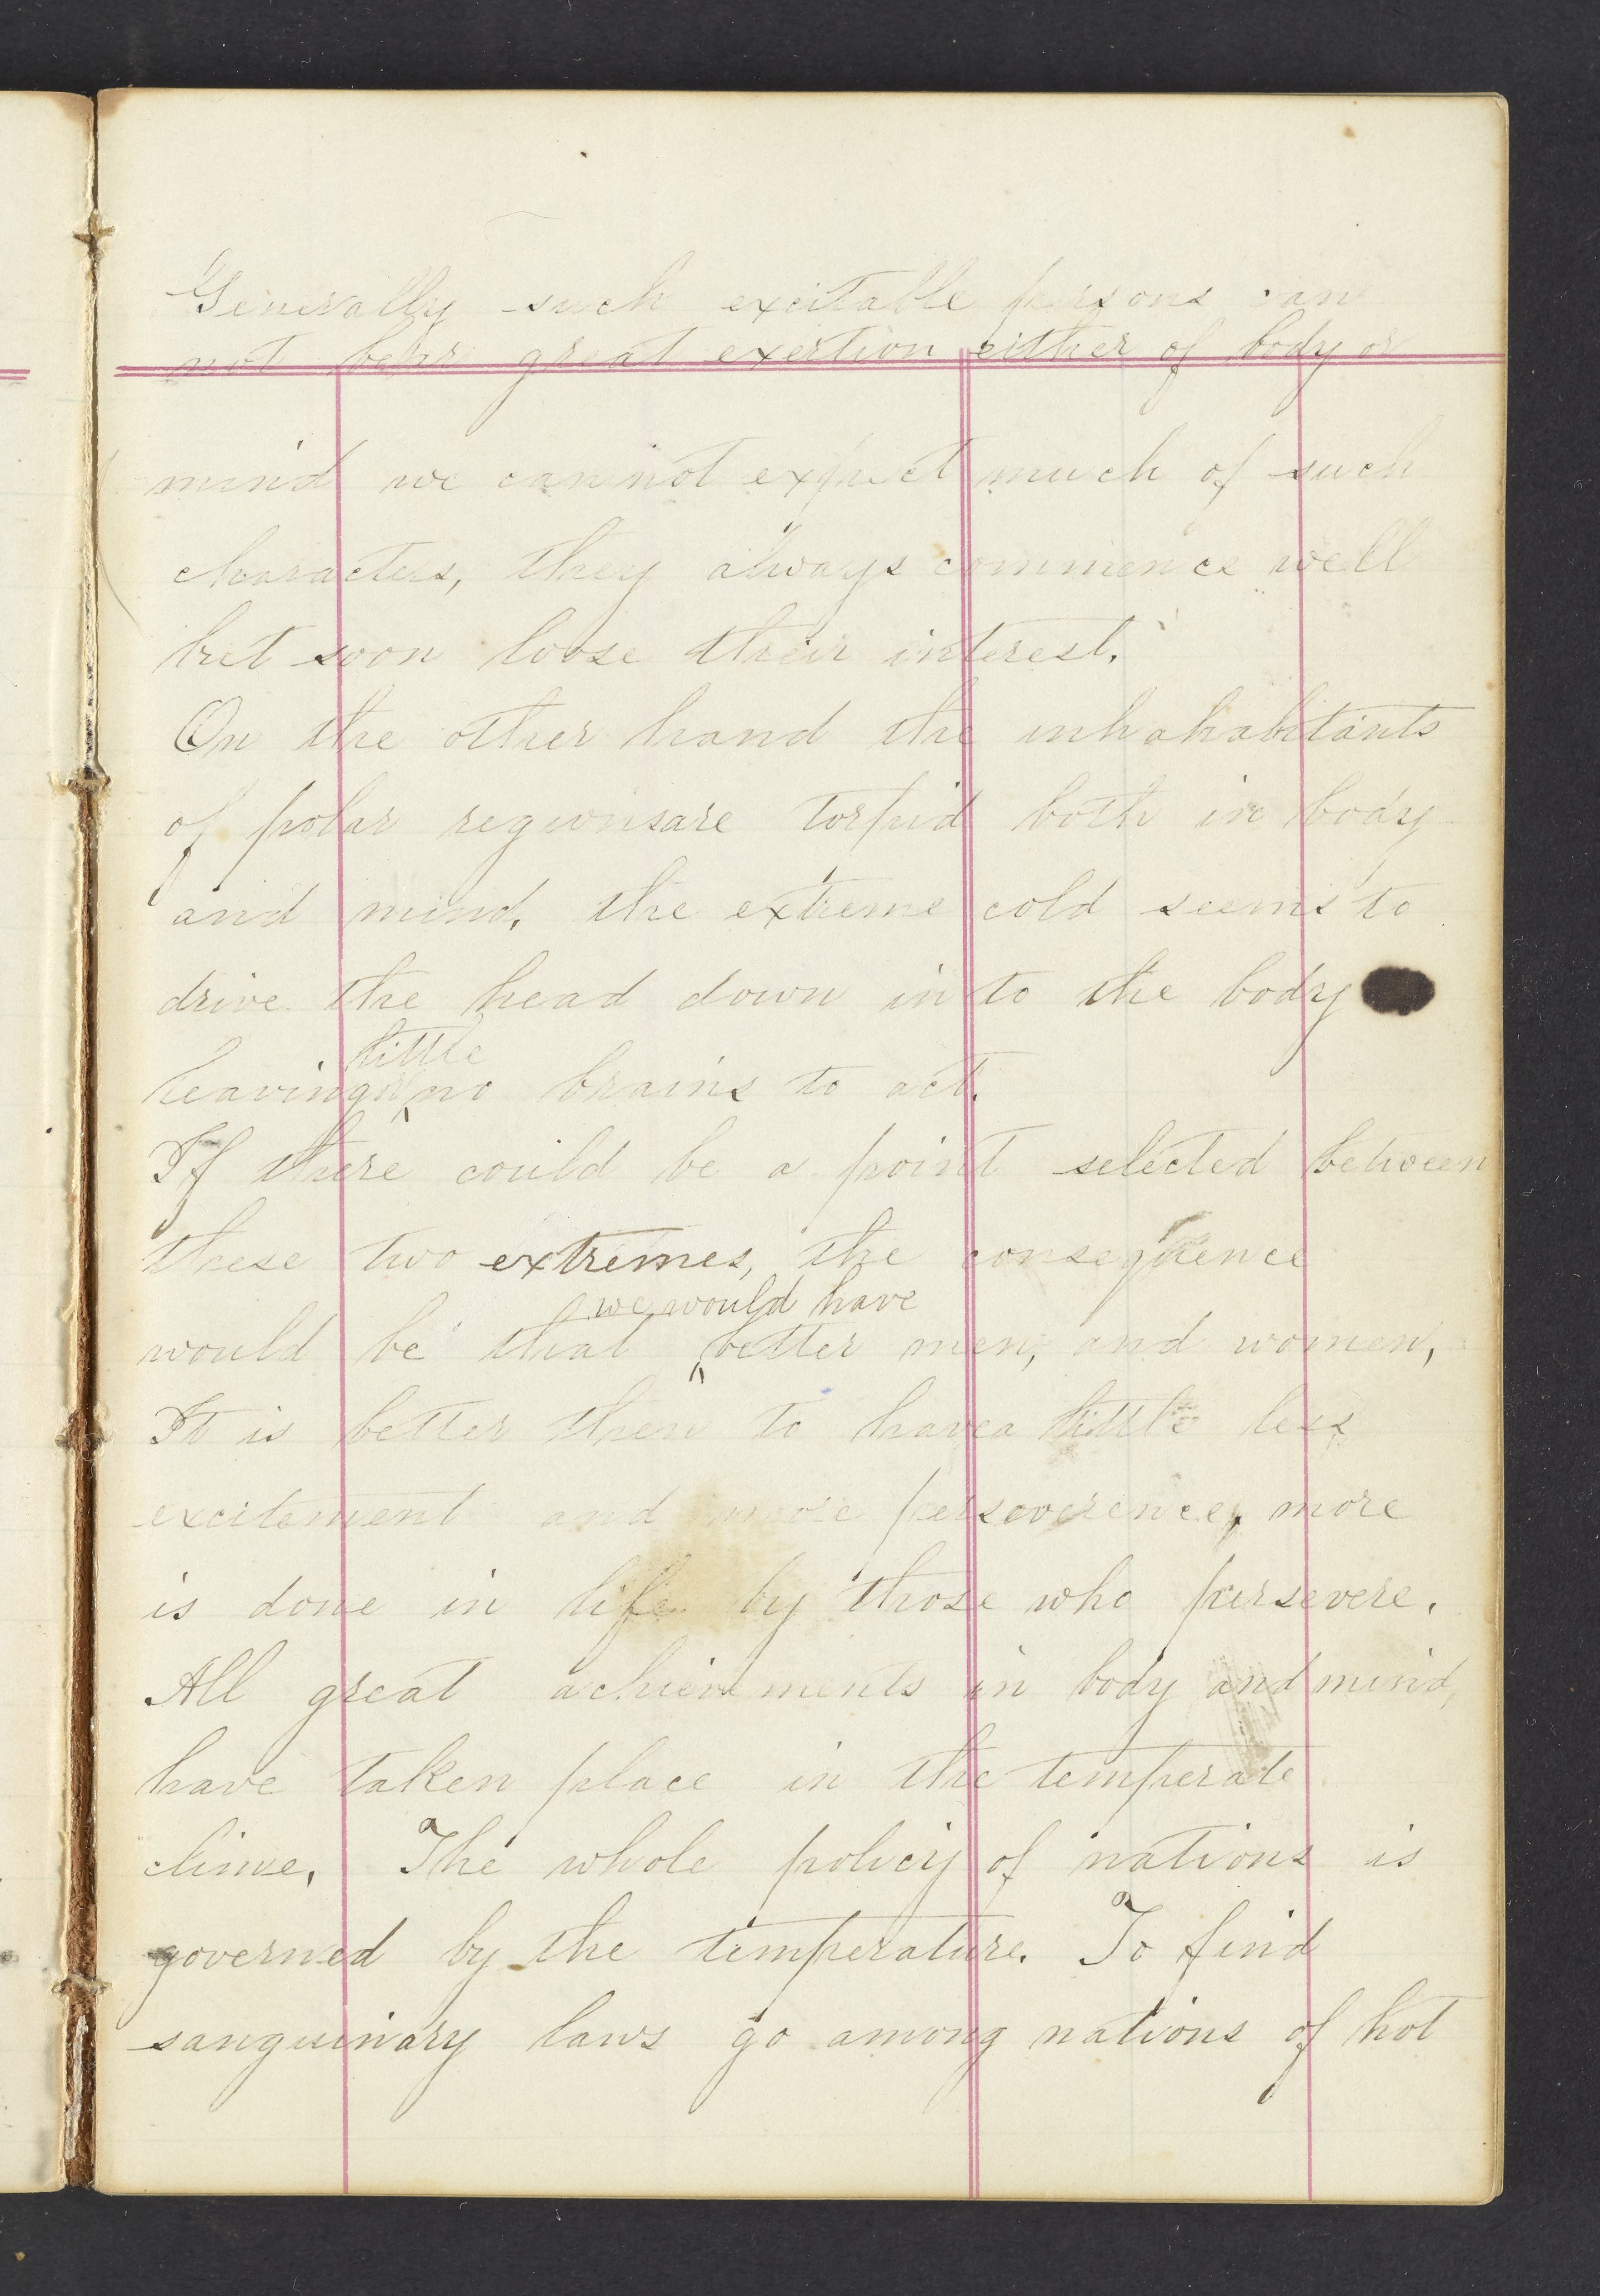 Generally such excitable persons can
not bear great exertion either of body or
mind we cannot expect much of such
characters, they always commence well
but soon loose their interest.
On the other hand the inhahabitants
of polar regionsare torpid both in body
and mind, the extreme cold seems to
drive the head down into the body
little
leaving no brains to act.
If there could be a point selected between
these two extremes, the consequence
we would have
would be that better men, and women,
It is better then to havea little less
excitement and more perseverence, more
is done in life by those who persevere.
All great achievements in body and mind,
have taken place in the temperate
clime. The whole policy of nations is
governed by the temperature. To find
sanguinary laws go among nations of hot